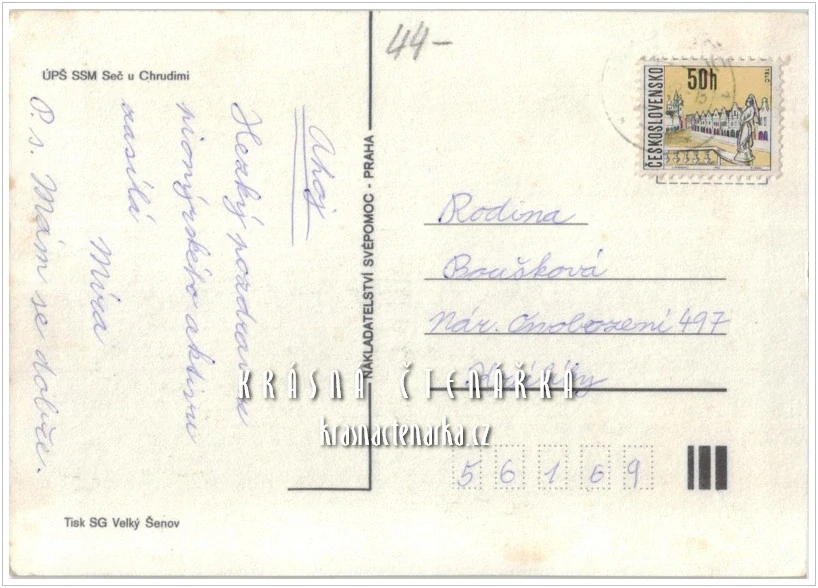 44-
ÚPŠ SSM Seč u Chrudimi
Ahoj
Hezký pozdrav z
pionýrského aktivu
zasílá
Míra
P. s. Mám se dobře.
NAKLADATELSTVÍ SVĚPOMOC - PRAHA
ČESKOSLOVENSKO
50h
TELČ
Rodina
Boušková
Nár. Osvobození 497
Králíky
56169
KRÁSNÁ ČTENÁŘKA
krasnactenarka.cz
Tisk SG Velký Šenov